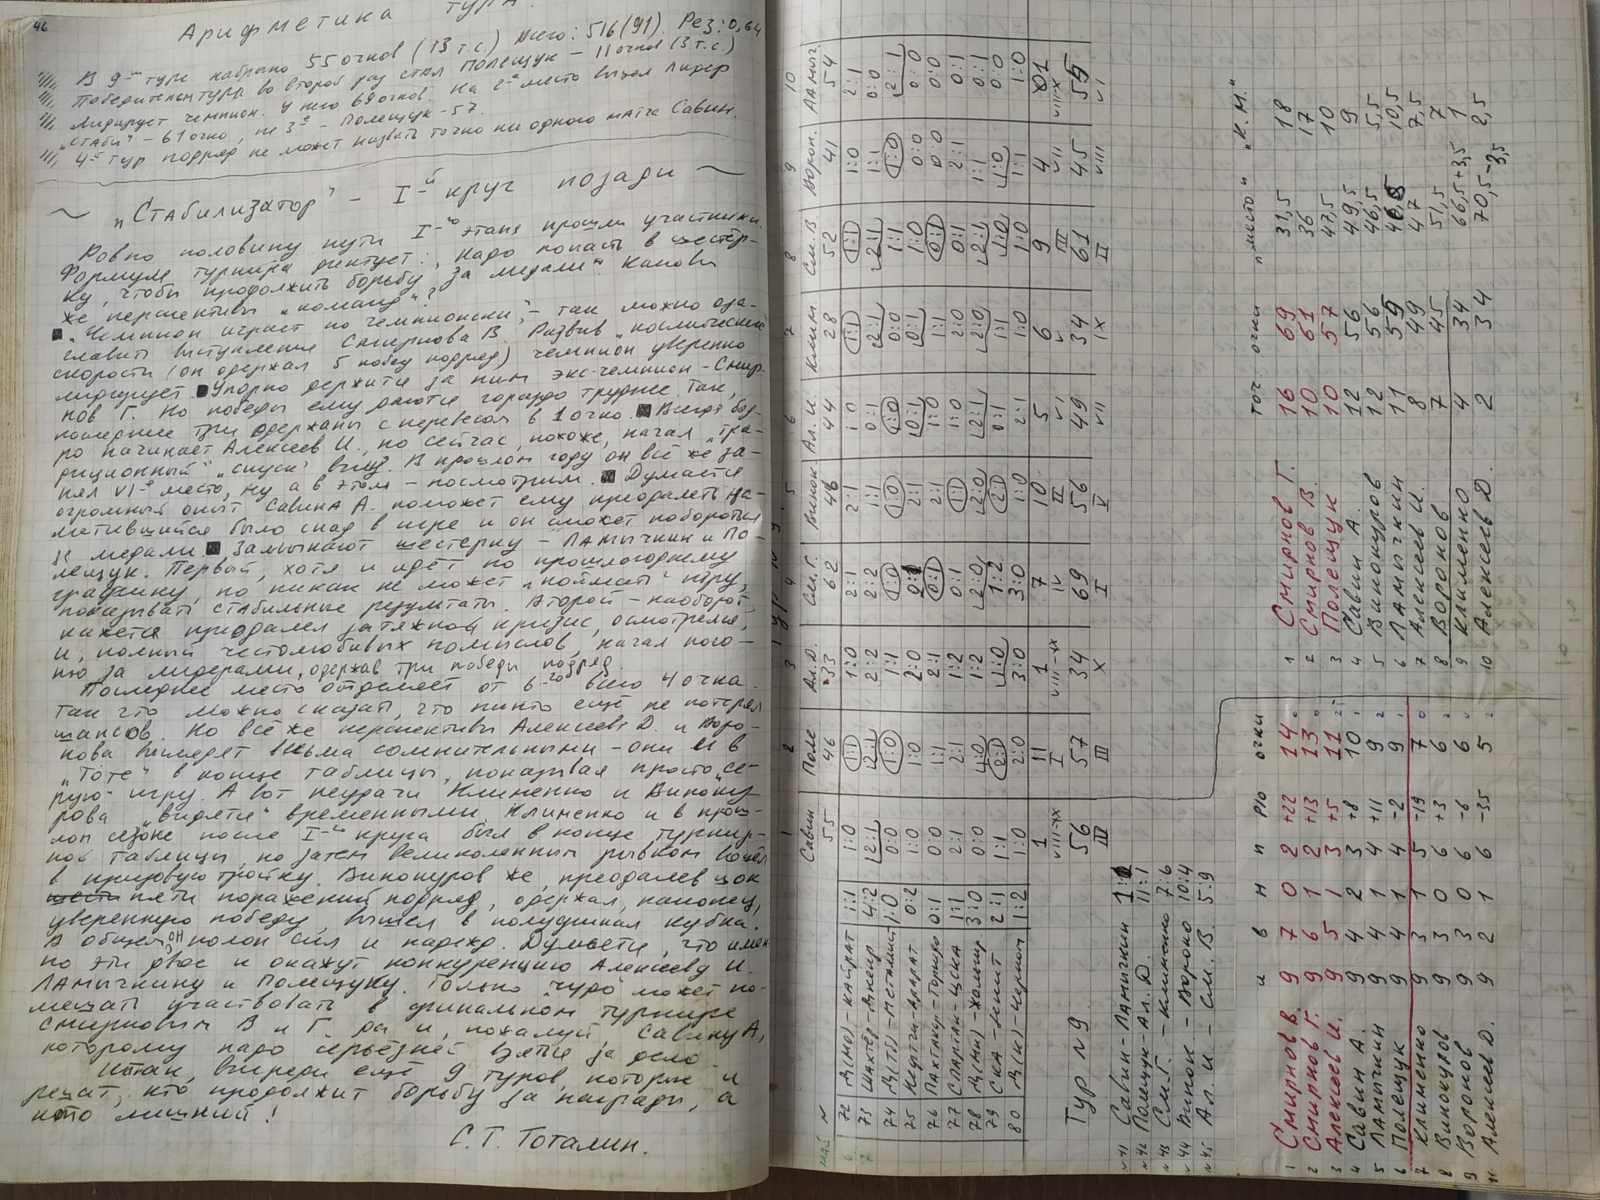 46
Арифметика тура.
В 9-м туре набрано 55 очков (13 т.с.) Всего: 516 (91). Рез: 0,64
Победителем тура во второй раз стал Полещук – 11 очков (3 т.с.)
Лидирует чемпион. У него 69 очков. На 2-е место вышел лидер
"Стаби" – 61 очко, на 3-е – Полещук – 57.
4-й тур подряд не может назвать точно ни одного матча Савин.
"Стабилизатор" – I-й круг позади
Ровно половину пути I-го этапа прошли участники.
Формула турнира диктует: "надо попасть в шестёр-
ку, чтобы продолжить борьбу за медали". Каковы
же перспективы "команд"?
"Чемпион играет по чемпионски", – так можно оза-
главить выступление Смирнова В. Развив "космическую"
скорость (он одержал 5 побед подряд) чемпион уверенно
лидирует. Упорно держится за ним экс-чемпион – Смир-
нов Г. Но победы ему даются гораздо труднее. Так,
последние три одержаны с перевесом в 1 очко. Всегда бод-
ро начинает Алексеев И., но сейчас, похоже, начал "тра-
диционный" "спуск" вниз. В прошлом году он всё же за-
нял VI-е место, ну а в этом – посмотрим. Думается
огромный опыт Савина А. поможет ему преодолеть на-
метившийся было спад в игре и он сможет побороться
за медали. Замыкают шестёрку – Ламычкин и По-
лещук. Первый, хотя и идёт по прошлогоднему
графику, но никак не может "поймать" игру,
показывать стабильные результаты. Второй – наоборот,
кажется преодолел затяжной кризис, осмотрелся,
и, полный честолюбивых помыслов, начал пого-
ню за лидерами, одержав три победы подряд.
Последнее место отделяет от 6-го всего 4 очка.
Так что можно сказать, что никто ещё не потерял
шансов. Но всё же перспективы Алексеева Д. и Воро-
нова выглядят весьма сомнительными – они и в
"Тоте" в конце таблицы, показывая просто "се-
рую" игру. А вот неудачи Клименко и Виноку
рова "видятся" временными. Клименко и в прош-
лом сезоне после I-го круга был в конце турнир-
ной таблицы, но затем великолепным рывком вошёл
в призовую тройку. Винокуров же, преодолев шок
пяти поражений подряд, одержал, наконец,
уверенную победу, вышел в полуфинал кубка.
В общем, он полон сил и надежд. Думается, что имен
но эти двое и окажут конкуренцию Алексееву И.
Ламычкину и Полещуку. Только "чудо" может по-
мешать участвовать в финальном турнире
Смирновым В и Г да и, пожалуй Савину А,
которому надо серьёзнее взяться за дело.
Итак, впереди ещё 9 туров, которые и
решат, кто продолжит борьбу за награды, а
кто лишний!
С. Т. Тоталин.
Тур № 9.
1 2 3 4 5 6 7 8 9 10
май № Савин Поле Ал.Д. См.Г. Винок Ал.И. Клим. См.В. Ворон. Ламыч.
55 46 33 62 46 44 28 52 41 54
72 Д(Мо) – Кайрат 1:1 1:0 1:1 1:0 2:1 2:1 1:0 1:1 1:1 1:0 2:1
73 Шахтёр – Днепр 4:2 2:1 2:1 2:2 2:2 1:1 0:1 2:1 2:1 1:1 0:0
74 Д(Тб) – Металлист 1:0 0:0 1:0 1:1 1:0 1:0 1:0 0:0 1:1 1:0 2:1
75 Нефтчи – Арарат 0:2 1:0 1:0 2:0 2:1 0:1 0:1 1:0 0:0 0:0
76 Пахтакор – Торпедо 0:1 0:0 1:1 2:1 0:1 2:1 1:0 1:1 0:1 0:0 0:0
77 Спартак – ЦСКА 1:1 2:1 2:1 1:2 0:1 1:1 1:0 2:0 0:1 2:1 0:1
78 Д(Мн) – Жальгир. 3:0 0:0 1:0 1:2 2:0 2:0 2:1 2:0 2:1 1:1 0:1
79 СКА – Зенит 2:1 1:1 2:1 1:0 1:2 2:1 0:1 1:1 1:0 1:0 0:0
80 Д(К) – Черном 1:2 1:0 2:0 3:0 3:0 1:0 2:1 1:0 1:0 1:1 1:0
1 11 1 7 10 5 6 9 4 01
VIII-XX I VIII-XX IV II VI V III VII VIII-X
56 57 34 69 56 49 34 61 45 55
IV III X I V VII IX II VIII VI
Тур №9
№41 Савин – Ламычкин
№42 Полещук – Ал. Д. 11:1
№43 См.Г. – Клименко 7:6
№44 Винок – Вороно 10:4
№45 Ал. И. – См. В 5:9
и в н п р/о очки
1 Смирнов В. 9 7 0 2 +22 14
2 Смирнов Г. 9 6 1 2 +13 13
3 Алексеев И. 9 5 1 3 +5 11
4 Савин А. 9 4 2 3 +8 10
5 Ламычкин 9 4 1 4 +11 9
6 Полещук 9 4 1 4 -2 9
7 Клименко 9 3 1 5 -19 7
8 Винокуров 9 3 0 6 +3 6
9 Воронов 9 3 0 6 -6 6
10 Алексеев Д. 9 2 1 6 -35 5
точ очки "место" "К.М."
1 Смирнов Г. 16 69 31,5 18
2 Смирнов В. 10 61 36 17
3 Полещук 10 57 47,5 10
4 Савин А. 12 56 49,5 9
5 Винокуров 12 56 46,5 5,5
6 Ламычкин 11 55 10,5
7 Алексеев И. 8 49 47 7,5
8 Воронов 7 45 51,5 7
9 Клименко 4 34 66,5+3,5 1
10 Алексеев Д. 2 34 70,5-3,5 2,5